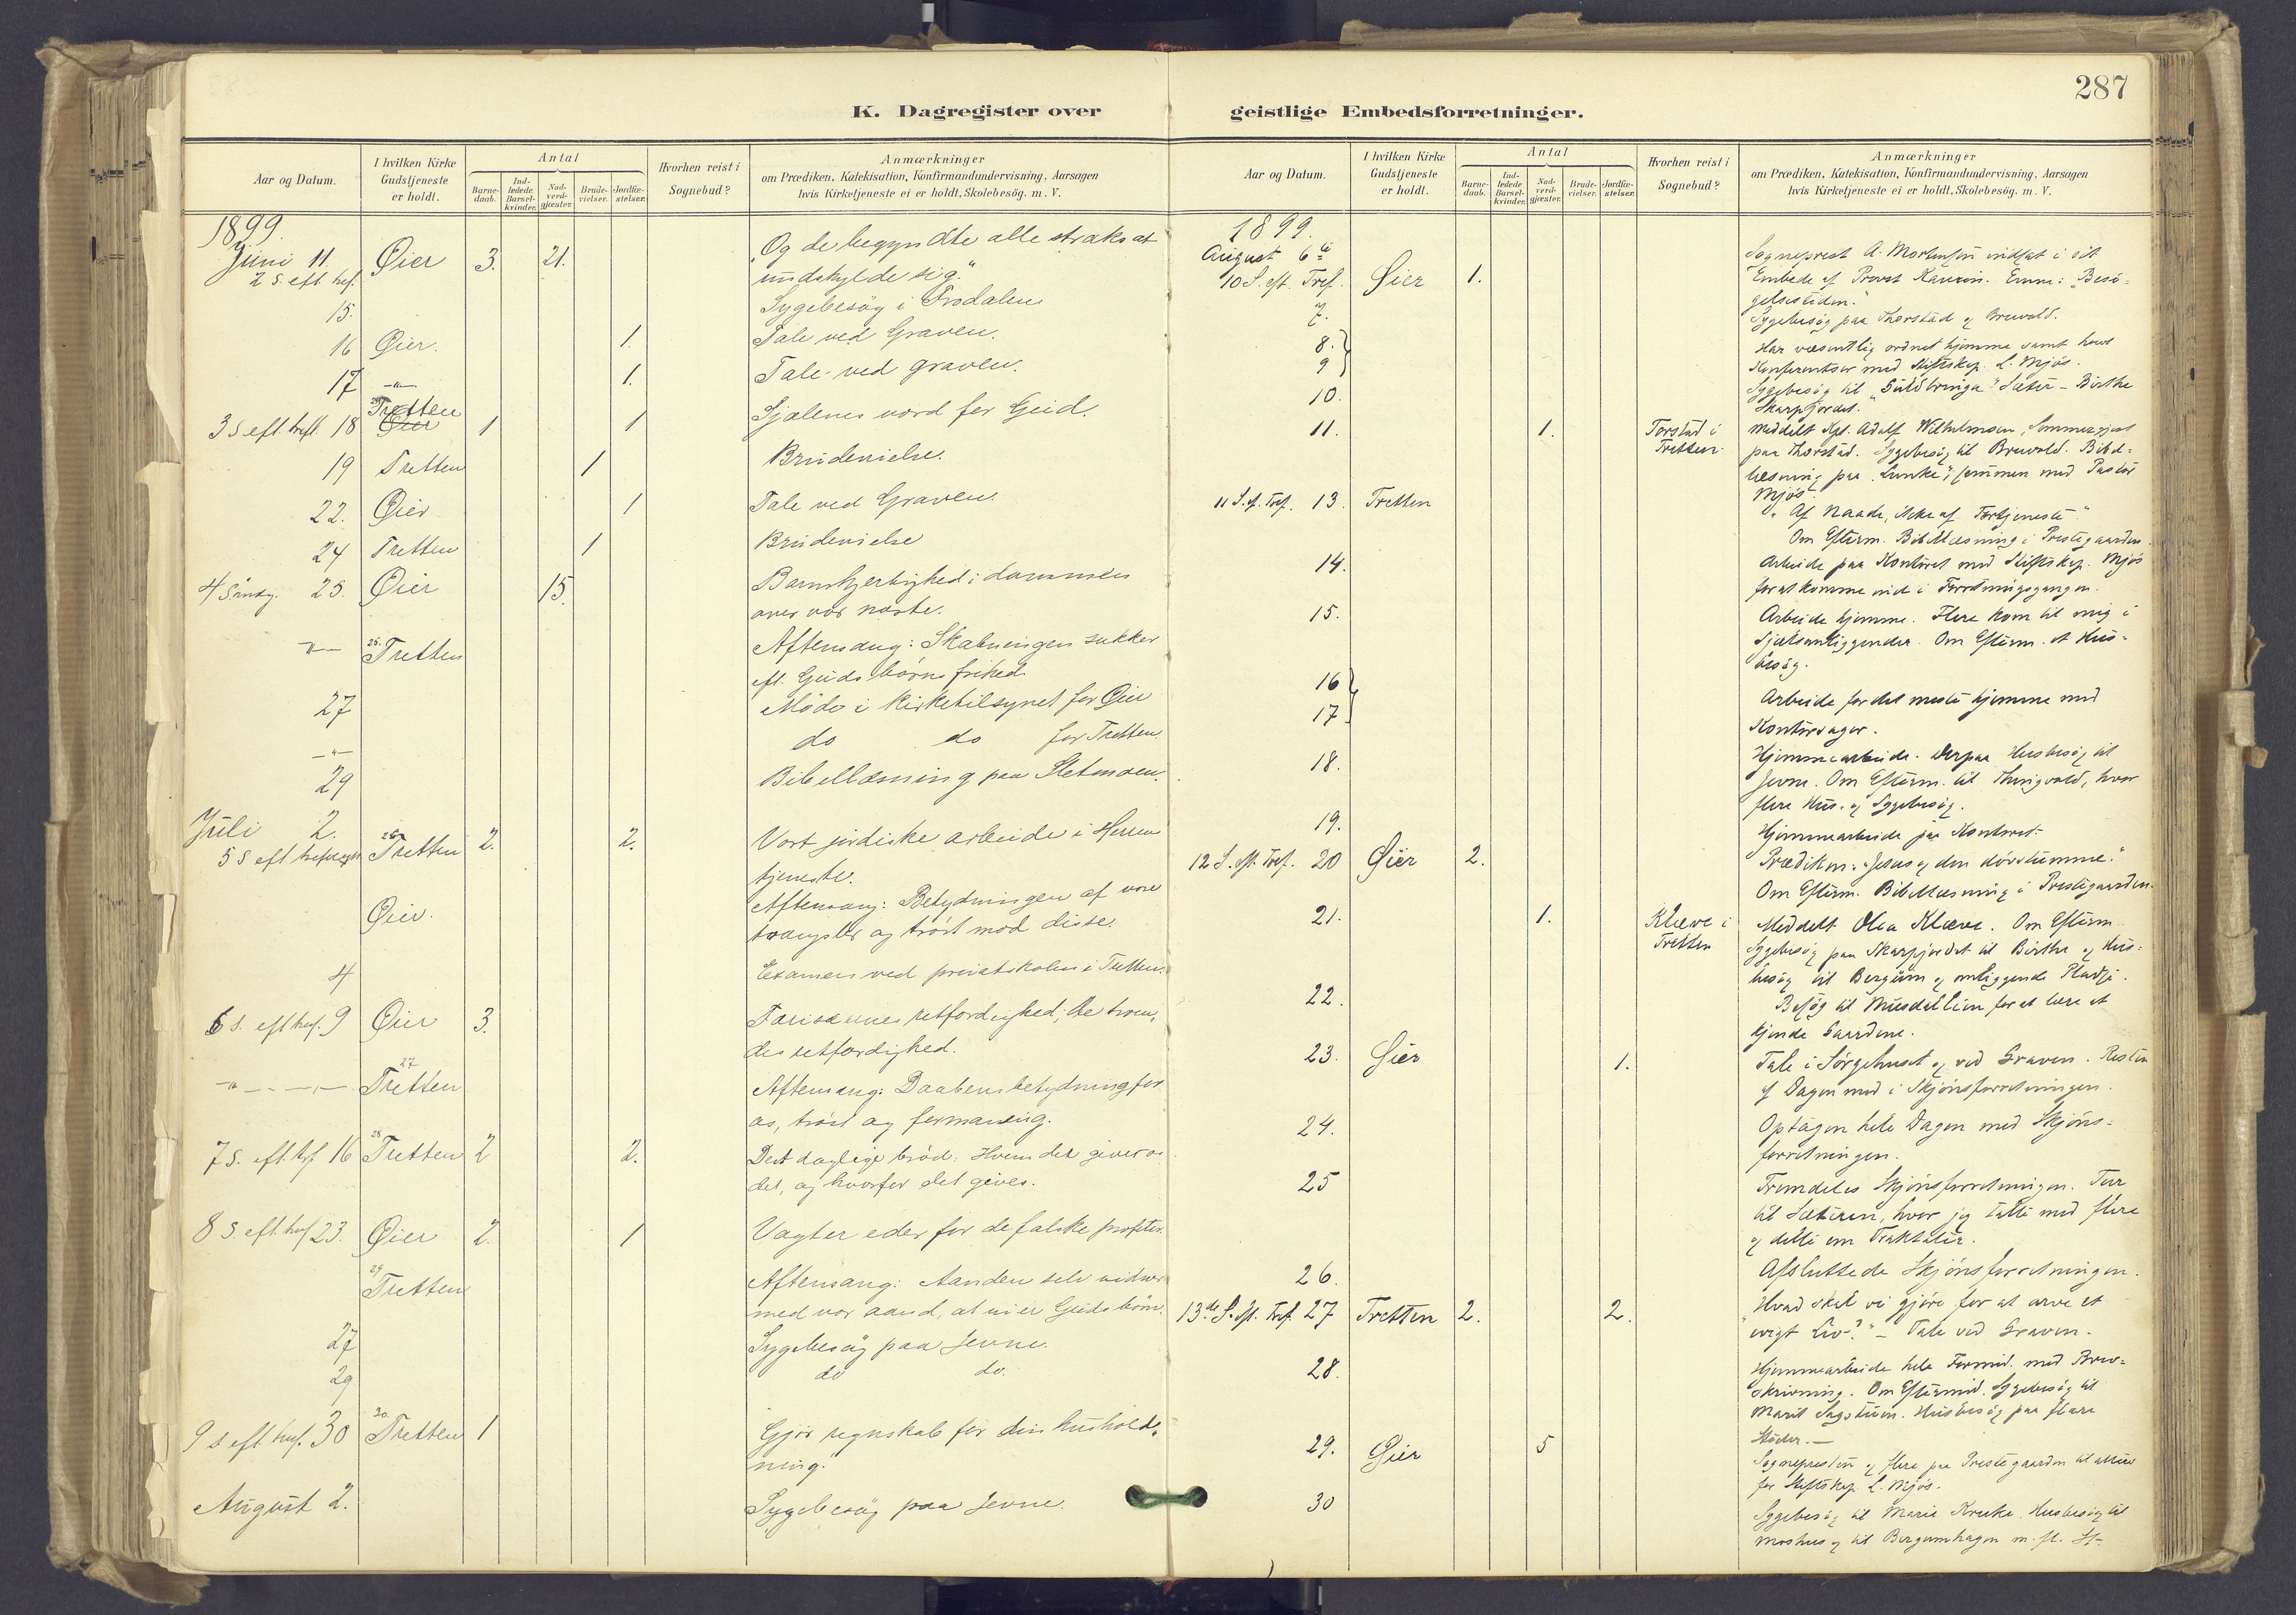 287
K. Dagregister over geistlige Embedsforretninger.
Aar og Datum.
I hvilken Kirke Gudstjeneste er holdt.
Antal
Barne-daab.
Ind-ledede Barsel-kvinder.
Nad-verd-gjæster.
Brude-vielser.
Jordfæ-stelser.
Hvorhen reist i Sognebud?
Anmærkninger
om Prædiken, Katekisation, Konfirmandundervisning, Aarsagen
hvis Kirketjeneste ei er holdt, Skolebesög. m. V.
1899.
Juni 11. Øier 3. 21. "Og de begyndte alle straks at
2 S. eft. tref. undskylde sig."
15. Sygebesög i
16 Øier. 1. Tale ved Graven.
17 -"- 1. Tale ved graven.
3 S eft. treft. 18 Tretten 1 1 Sjælenes værd for Gud.
19 Tretten 1 Brudevielse.
22. Øier 1 Tale ved Graven.
24 Tretten 1 Brudevielse
4 Sönd. 25. Øier 15. Barmhjertighed i dommen
over vor næste.
-"- 25. Tretten Aftensang: Skabningen sukker
eft. Guds börns frihed
27 Möde i kirketilsynet for Øier
-"- do do for Tretten.
29 Bibellæsning paa
Juli 2. 26. Tretten 2. 2. Vort jordiske arbeide i Herrens
5 S eft tjeneste.
Øier. Aftensang: Betydningen af vore
trængsler og tröst mod disse.
4 Examen ved privatskolen i Tretten.
6 S. eft tref. 9 Øier 3. Farisæernes retfærdighed; de troen-
des retfærdighed.
-"- 27 Tretten Aftensang: Daabens betydning for
os, tröst og formaning.
7 S. eft. tref 16 28 Tretten 2 2. Det daglige bröd. Hvem der giver os
det, og hvorfor det gives.
8 S eft. tref 23. Øier 2. 1 Vogter eder for de falske profeter.
29 Tretten Aftensang: Aanden selv vidner
med vor aand, at vi er Guds börn.
27 Sygebesög paa Jevne.
29 do do.
9 s eft tref. 30 30. Tretten 1 Gjör regnskab for din hushold-
ning.
August 2. Sygebesög paa Jevne.
Aar og Datum.
I hvilken Kirke Gudstjeneste er holdt.
Antal
Barne-daab.
Ind-ledede Barsel-kvinder.
Nad-verd-gjæster.
Brude-vielser.
Jordfæ-stelser.
Hvorhen reist i Sognebud?
Anmærkninger
om Prædiken, Katekisation, Konfirmandundervisning, Aarsagen
hvis Kirketjeneste ei er holdt, Skolebesög. m. V.
1899.
August 6te Sogneprest A. Mortensen indsat i sit
10 S. eft. Tref. Øier 1. Embede af Provst Kaurin. Emne: "Besö-
gelsestiden."
7. Sygebesög paa Thorstad og Bruvold.
8. Har væsentlig ordnet hjemme samt havt
9 Konferentser med Stiftskap. L. Mjös.
10. Sygebesög til Sæter - Birthe
Skarpsjordet.
11. 1. Torstad i Tretten. Meddelt Kpt. Adolf Wilhelmsen, Sommergjæst
paa Thorstad. Sygebesög til Bruvold. Bibel-
læsning paa sammen med Pastor
Mjös.
11 S. ef. Tref. 13. Tretten "Af Naade, ikke af Fortjeneste."
Om Efterm. Bibellæsning i Prestegaarden.
14. Arbeide paa Kontoret med Stiftskap. Mjös
for at komme ind i Forretningsgangen.
15. Arbeide hjemme. Flere kom til mig i
Sjæleanliggender. Om Efterm. et Hus-
besög.
16 Arbeide for det meste hjemme med
17 Kontorsager.
18. Hjemmearbeide. Derpaa Husbesög til
Jevne. Om Efterm. til hvor
flere Hus- og Sygebesög.
19. Hjemmearbeide paa Kontoret.
12 S. eft. Tref. 20 Øier 2. Prædiken: "Jesus og den dövstumme."
Om Efterm. Bibellæsning i Prestegaarden.
21. 1. Kleve i Tretten Meddelt Olea Kleve. Om Efterm.
Sygebesög paa Skarpsjordet til Birthe og Hus-
besög til Bergum og omliggende Pladse.
22. Besög til for at lære at
kjende Gaardene.
23. Øier 1. Tale i Sørgehuset og ved Graven. Resten
af Dagen med i Skjönsforretningen.
24. Optagen hele Dagen med Skjöns-
forretningen.
25 Fremdeles Skjönsforretningen. Tur
til Sæteren, hvor jeg talte med flere
og delte om Traktater.
26. Afsluttede Skjönsforretningen.
13de S. eft. Tref. 27 Tretten 2. 2. Hvad skal vi gjöre for at arve et
evigt Liv?" - Tale ved Graven.
28. Hjemmearbeide hele Formid. med Brev-
skrivning. Om Eftermid. Sygebesög til
Marit Husbesög paa flere
Steder. -
29. Øier 5 Sognepresten og flere paa Prestegaarden til alters
for Stiftskap. L. Mjös.
30 Sygebesög til Marie Husbesög til
Moshus og til Bergumhagen m. fl. St.